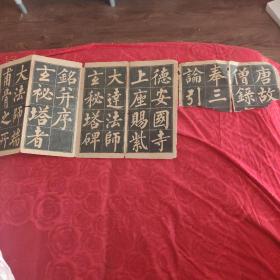 唐故
僧錄
奉三
論引
德安國寺
上座賜紫
大達法師
玄秘塔碑
銘并序
玄秘塔者
大法師端
甫骨之所